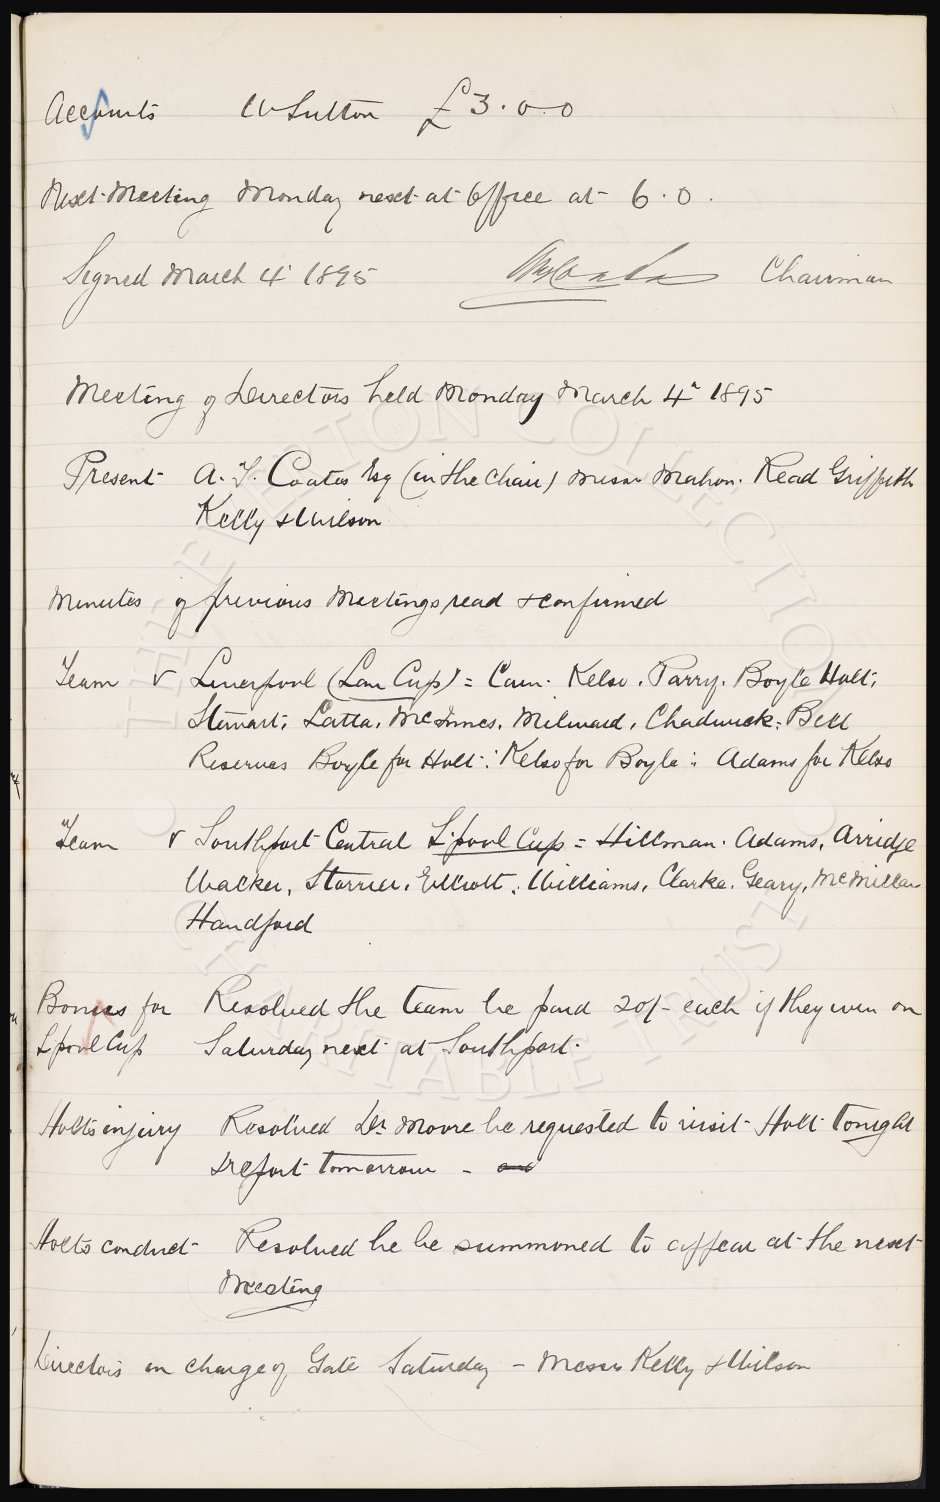 Accounts W Sutton £3.0.0
Next Meeting Monday next at Office at 6.0.
Signed March 4th 1895 Chairman
Meeting of Directors held Monday March 4th 1895
Present A. T. Coates Esq (in the Chair) Messrs Mahon. Read Griffith
Kelly & Wilson
Minutes of previous Meetings read & confirmed
Team v Liverpool (Lan Cup) = Cain. Kelso. Parry. Boyle Holt.
Stewart. Latta. McInnes. Milward. Chadwick. Bell
Reserves Boyle for Holt : Kelso for Boyle : Adams for Kelso
Team v Southport Central L'pool Cup = Hillman. Adams. Arridge
Walker. Storrier. Elliott. Williams. Clarke. Geary. McMillan
Handford
Bonus for Resolved the team be paid 20/- each if they win on
L'pool Cup Saturday next at Southport.
Holts injury Resolved Dr Moore be requested to visit Holt tonight
& report tomorrow - and
Holts conduct Resolved he be summoned to appear at the next
Meeting
Directors in charge of Gate Saturday - Messrs Kelly & Wilson
THE EVERTON COLLECTION
CHARITABLE TRUST